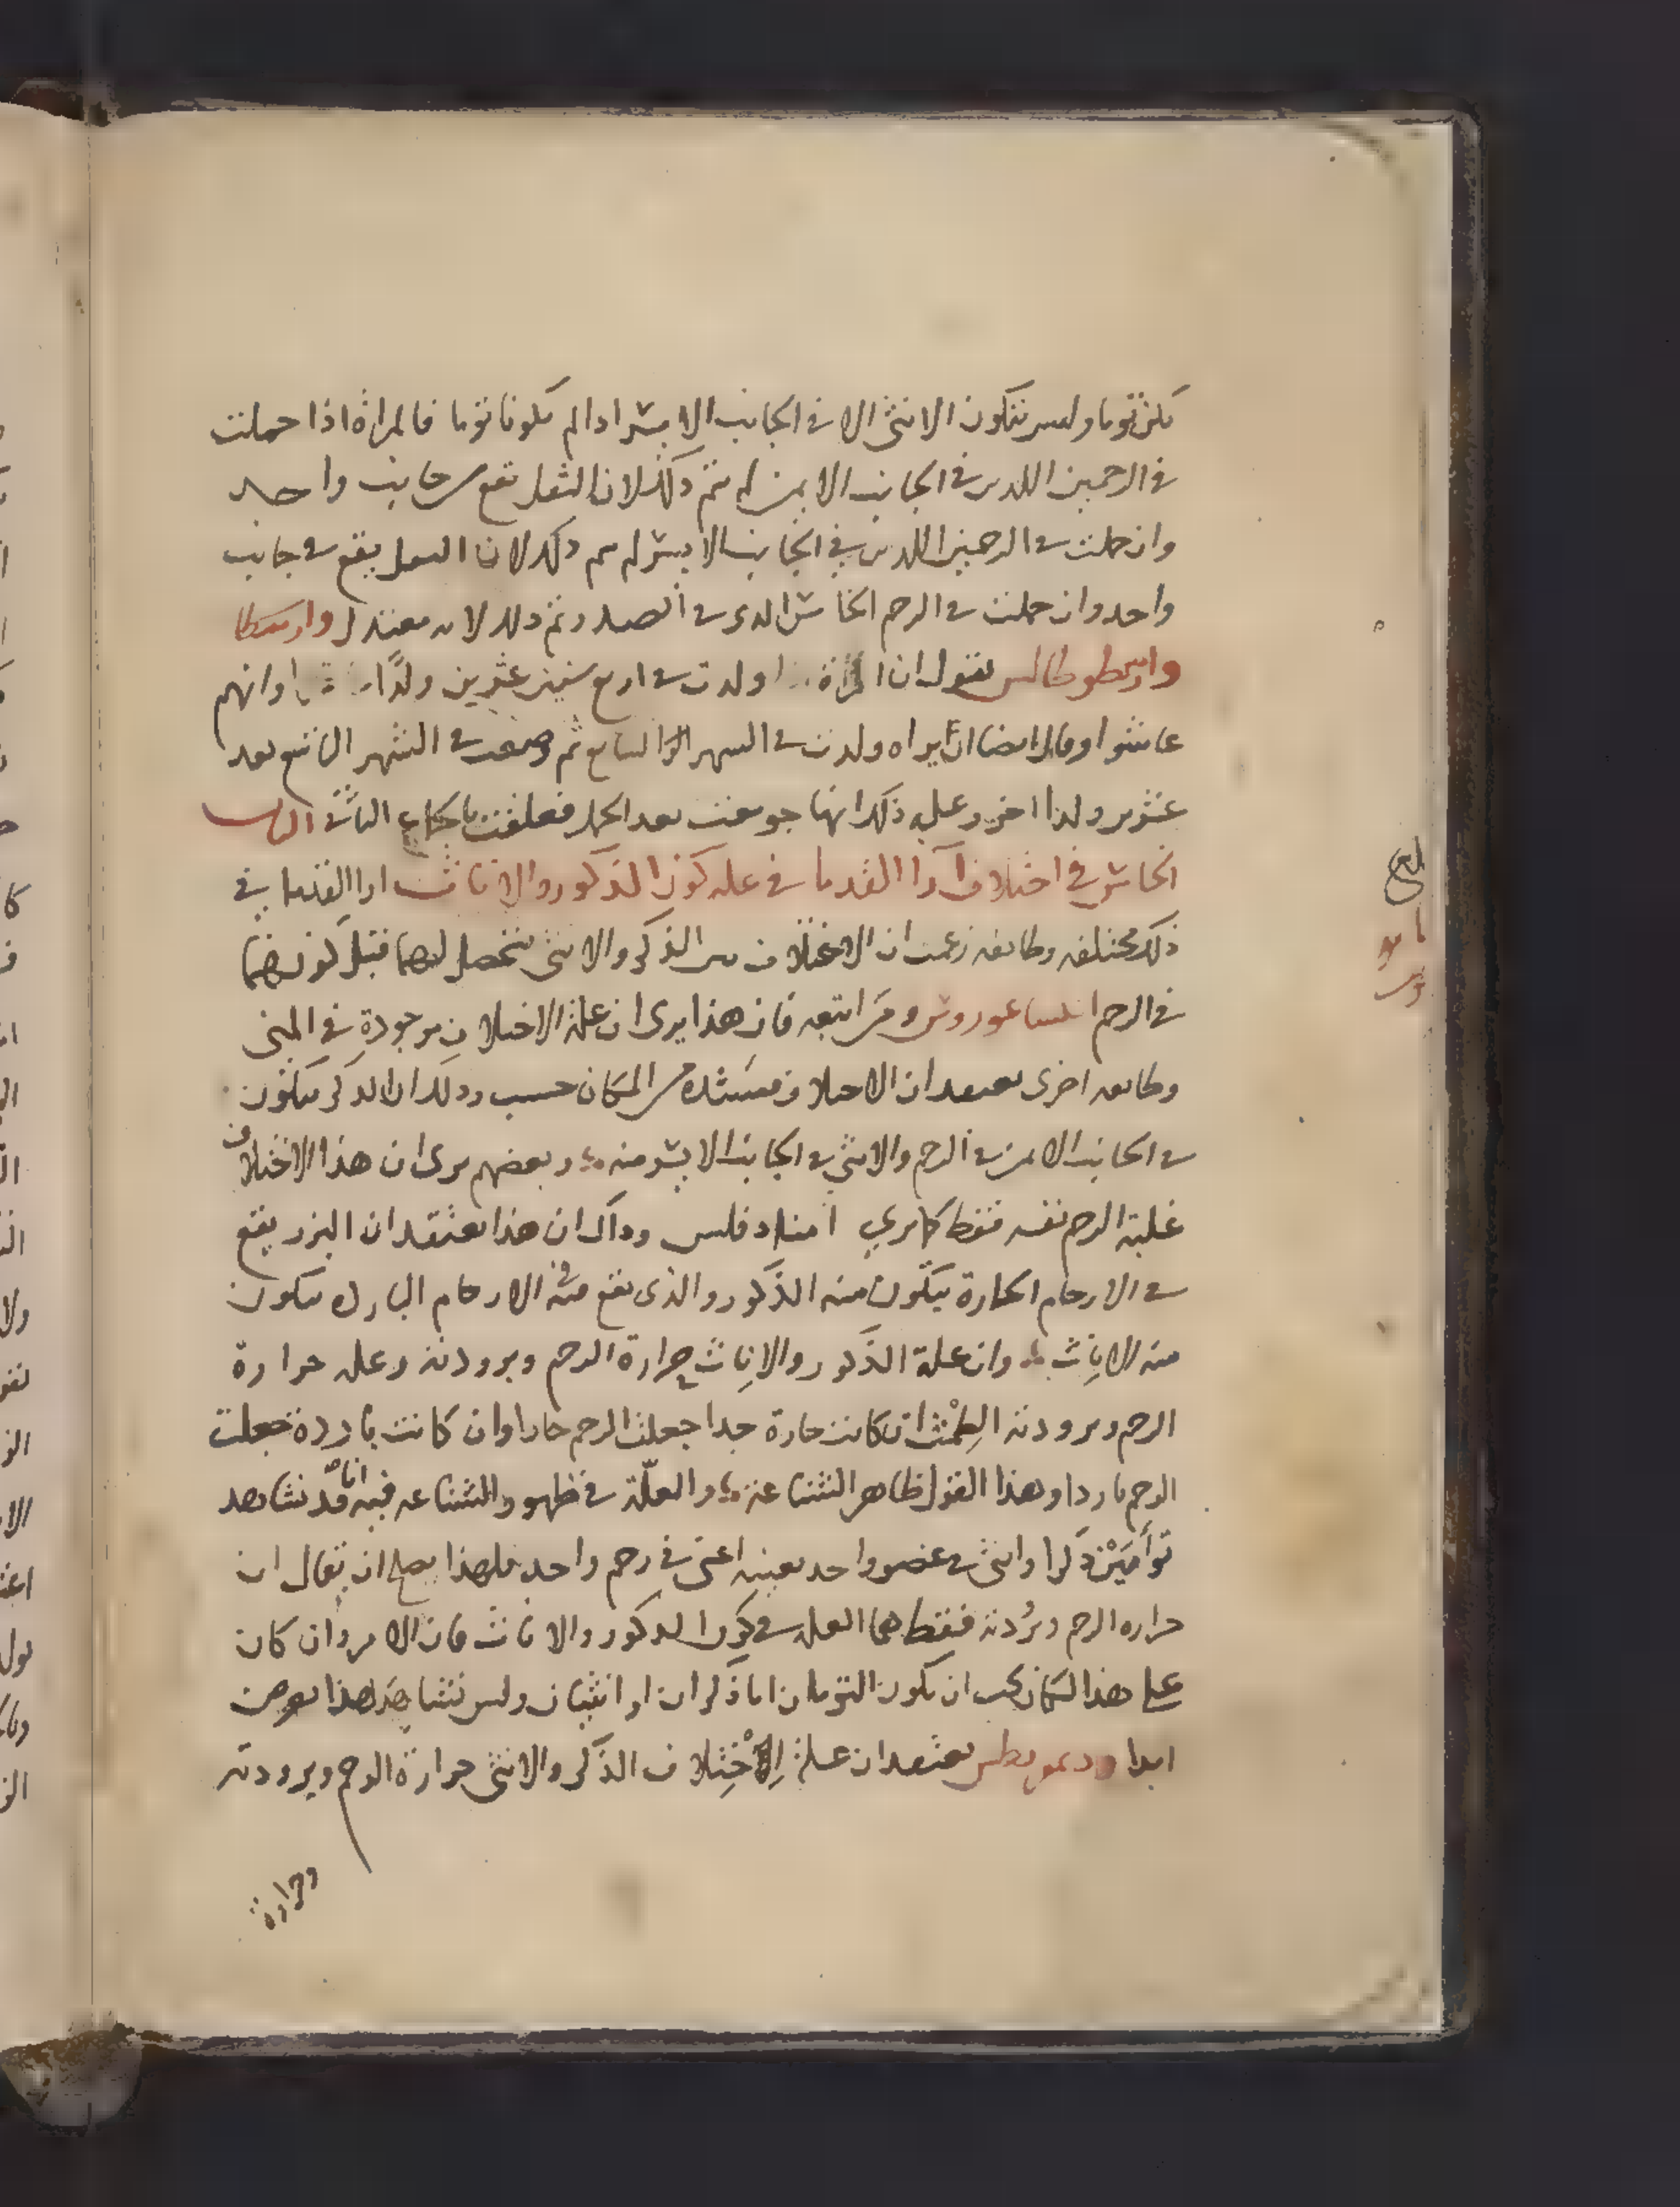 يكن توما وليس تتكون الانثى الا في الجانب الايسر اذا لم يكونا توما فالمراة اذا حملت
في الرحمين اللذين في الجانب الايمن لم يتم ذلك لان الثقل يقع في جانب واحد
وان حملت في الرحمين اللذين في الجانب الايسر لم يتم ذلك لان الثقل يقع في جانب
واحد وان حملت في الرحم الخامس الذي في الصدر تم ذلك لانه معتدل وارسطا
وارسطوطالس يقول ان امراة ولدت في اربع سنين عشرين ولدا وانهم
عاشوا وقال ايضا ان امراه ولدت في الشهر السابع ثم وضعت في الشهر التاسع بعد
عشرين ولدا اخر وعلة ذلك انها جومعت بعد الحمل فعلقت بالجماع الثاني الباب
الخامس في اختلاف آرا القدما في علة كون الذكور والاناث ارا القدما في
ذلك مختلفه وطايفه زعمت ان الاختلاف بين الذكر والانثى يتحصل لهما قبل كونهما
في الرحم ومن اتبعه فان هذا يرى ان علة الاختلاف موجودة في المنى
وطايفه اخرى تعتقد ان الاختلاف من المكان حسب وذلك ان الذكر يتكون
في الجانب الايمن في الرحم والانثى في الجانب الايسر منه وبعضهم يرى ان هذا الاختلاف
علته الرحم نفسه فقط كما يرى امنادقلس وذاك ان هذا يعتقد ان البزر يقع
في الارحام الحارة يتكون منه الذكور والذي يقع منه في الارحام الباردة يتكون
منه الاناث وان علة الذكور والاناث حرارة الرحم وبرودته وعلة حرارة
الرحم وبرودته الطمث ان كانت حارة جدا جعلت الرحم حارا وان كانت باردة جعلت
الرحم باردا وهذا القول ظاهر الشناعة والعلة في ظهور الشناعه فيه انا قد نشاهد
توأمين ذكرا وانثى في عضو واحد بعينه اعنى في رحم واحد فلهذا يصح ان يقال ان
حرارة الرحم وبردته فقط هما العلة في كون الذكور والاناث فان الامر وان كان
على هذا المكان يجب ان يكون التومان اما ذكران او انثيان وليس نشاهد هذا يعرض
ابدا ودیموقريطس يعتقد ان علة الاختلاف الذكر والانثى حرارة الرحم وبرودته
وحرارة